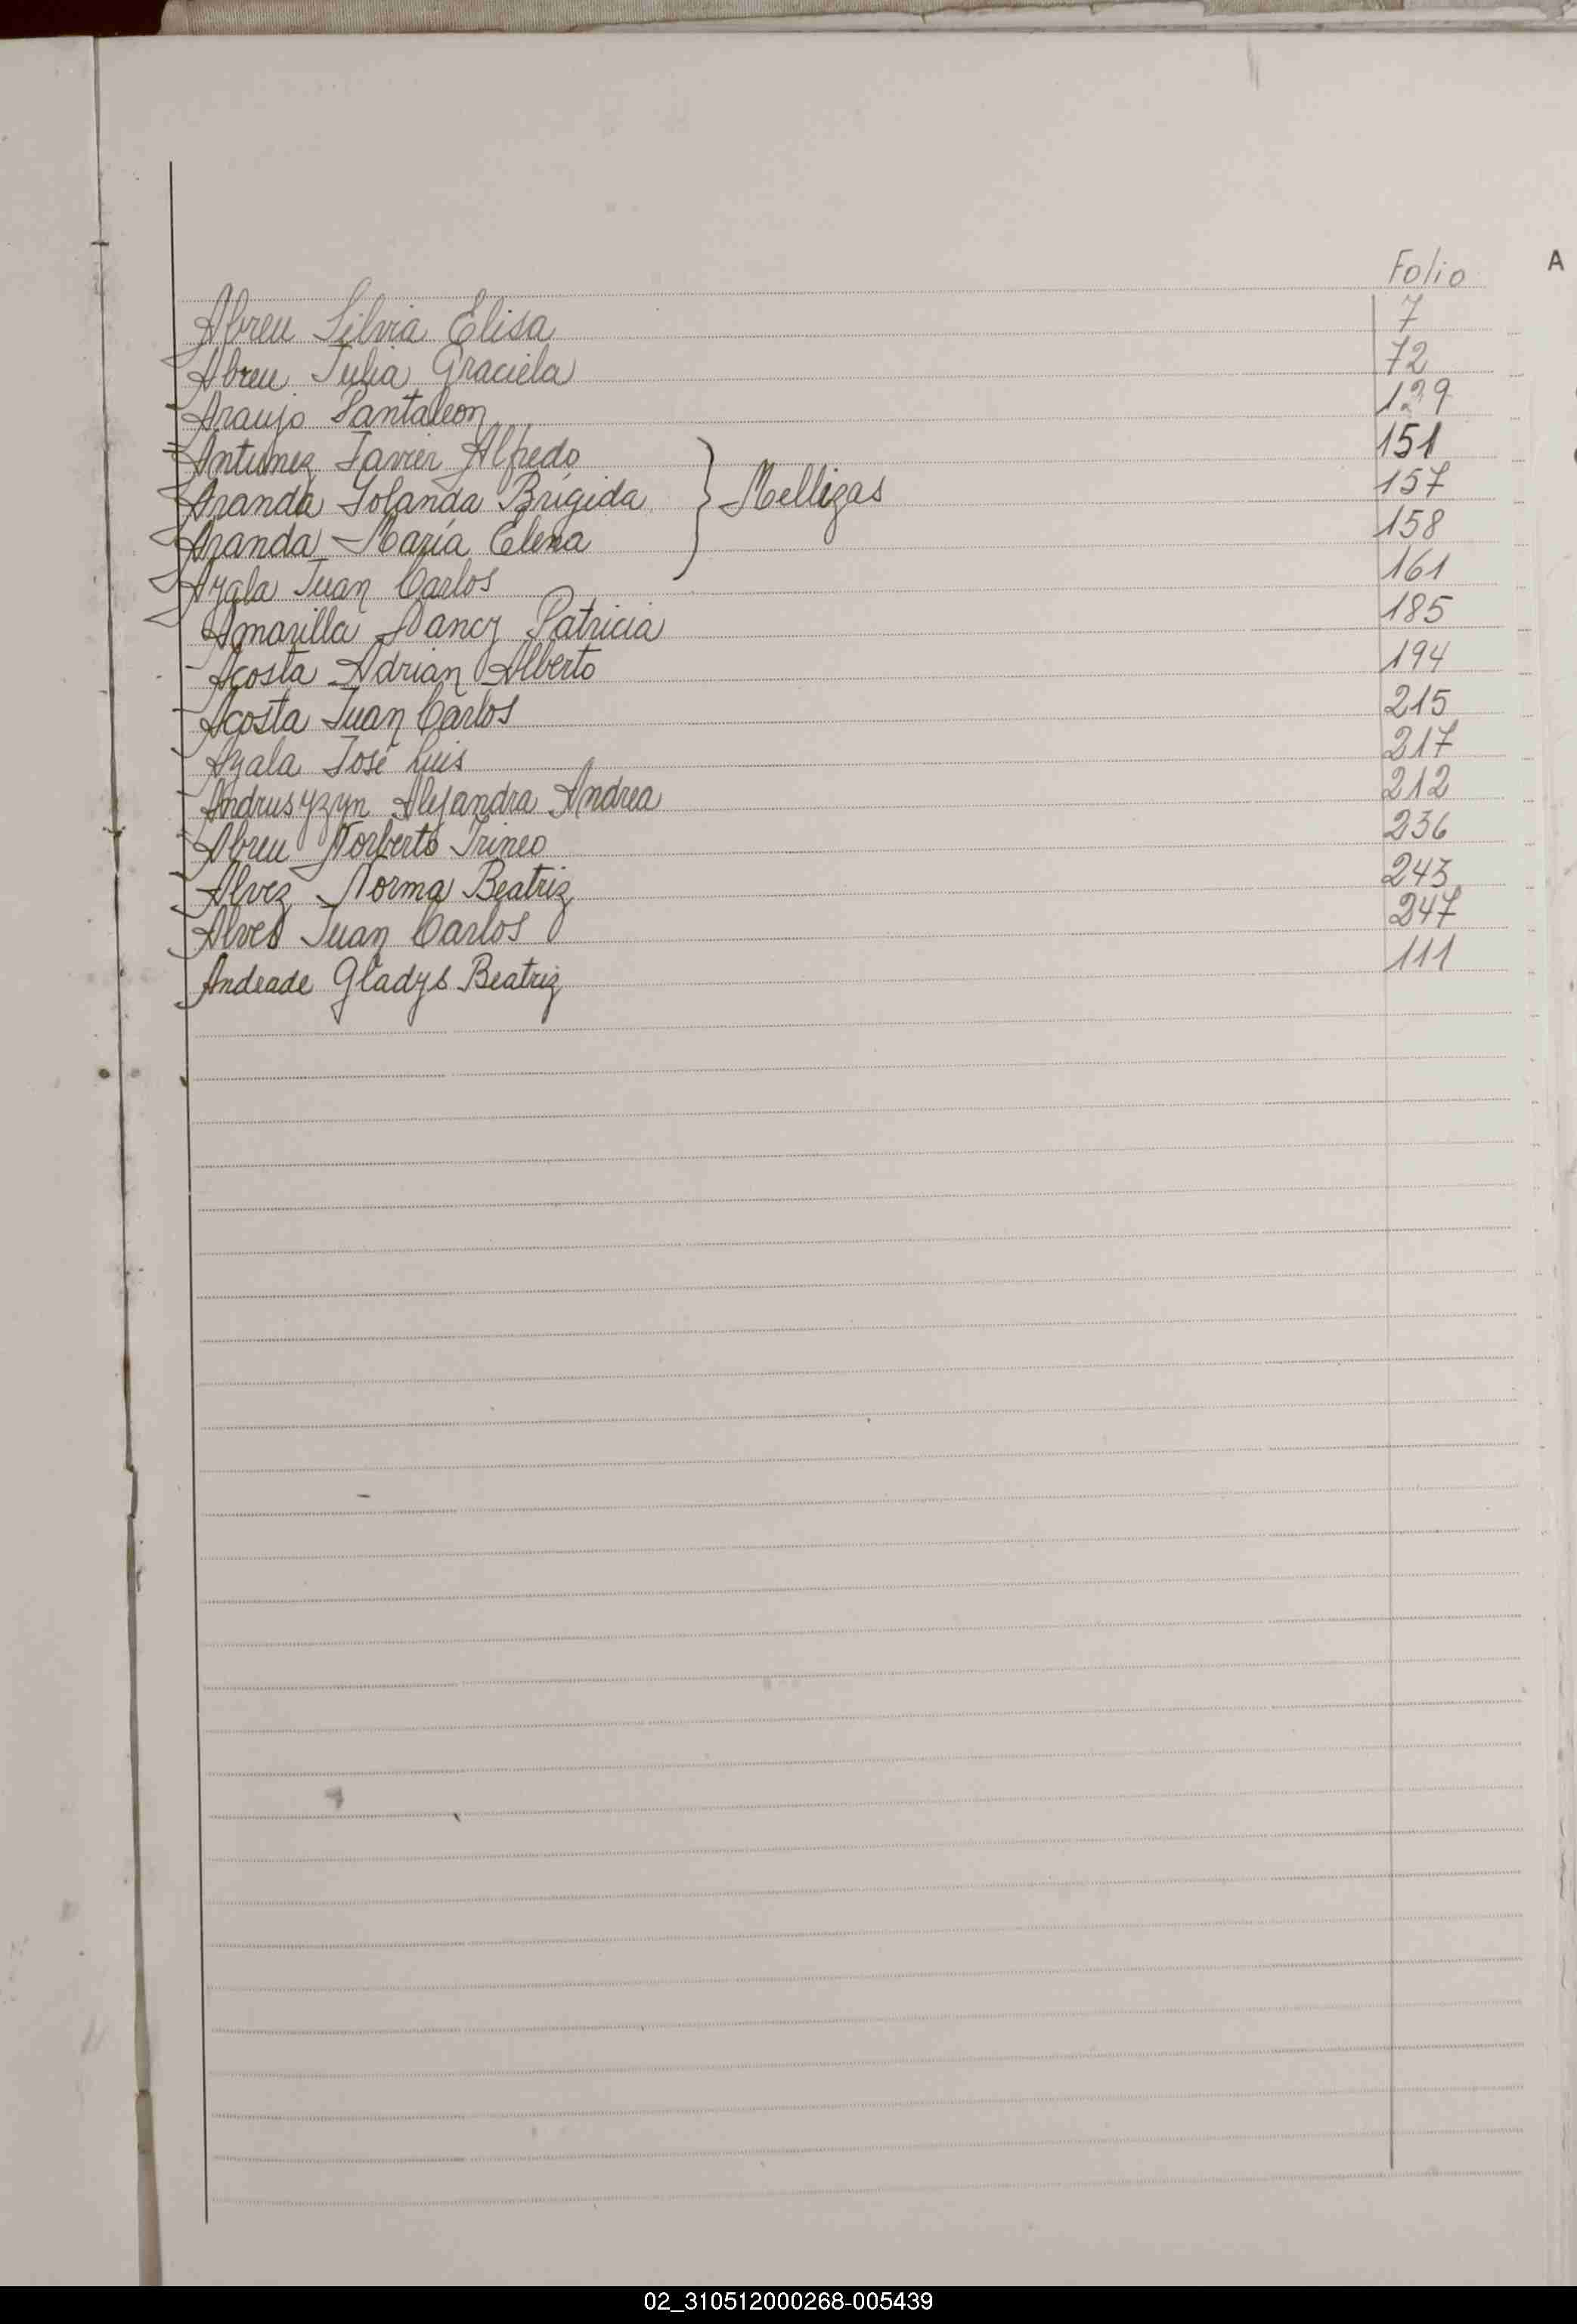 Folio
A
Abreu Silvia Elisa 7
Abreu Julia Graciela 72
Araujo Pantaleon 139
Antunez Javier Alfredo 151
Aranda Yolanda Brígida 157
Mellizas
Aranda María Elena 158
Ayala Juan Carlos 161
Amarilla Nancy Patricia 185
Acosta Adrian Alberto 194
Acosta Juan Carlos 215
Ayala José Luis 217
Andrusyzyn Alejandra Andrea 212
Abreu Norberto Irineo 236
Alvez Norma Beatriz 243
Alves Juan Carlos 247
Andrade Gladys Beatriz 111
02_310512000268-005439